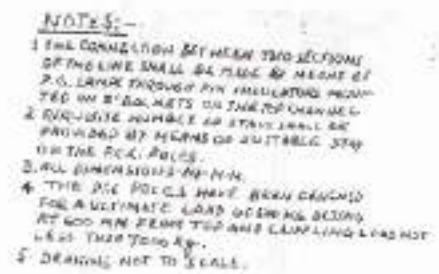 NOTES:-
1 THE CONNECTION BETWEEN TWO SECTIONS
OF THE LINE SHALL BE MADE BY MEANS OF
P.G. CLAMPS THROUGH PIN INSULATORS MOUN-
TED ON BRACKETS ON THE TOP CHANNEL
2 REQUISITE NUMBER OF STAYS SHALL BE
PROVIDED BY MEANS OF SUITABLE STAY
ON THE P.C.C. POLES.
3. ALL DIMENSIONS IN M.M.
4 THE PCC POLES HAVE BEEN DESIGNED
FOR A ULTIMATE LOAD OF KG BEING
AT 600 MM FROM TOP AND LOAD NOT
LESS THAN KG.
5 DRAWING NOT TO SCALE.